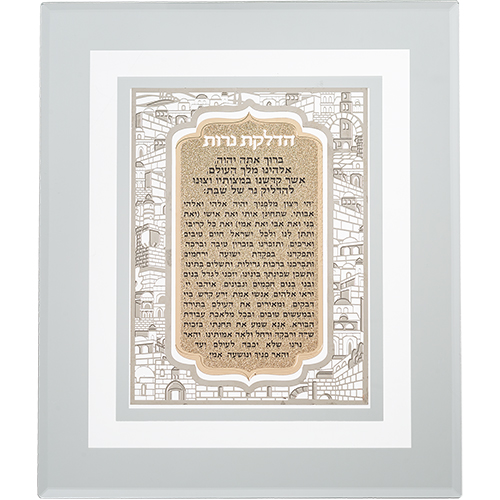 הדלקת נרות
ברוך אתה יהוה,
אלהינו מלך העולם
אשר קדשנו במצותיו וצונו
להדליק נר של שבת:
יהי רצון מלפניך יהוה אלהי ואלהי
אבותי, שתחונן אותי ואת אישי (ואת
בני ואת אבי ואת אמי) ואת כל קרובי,
ותתן לנו ולכל ישראל חיים טובים
וארכים, ותזכרנו בזכרון טובה וברכה
ותפקדנו בפקדת ישועה ורחמים
ותברכנו ברכות גדולות, ותשלים בתינו,
ותשכן שכינתך בינינו. וזכני לגדל בנים
ובני בנים חכמים ונבונים, אוהבי יי
יראי אלהים, אנשי אמת זרע קדש, ביי
דבקים, ומאירים את העולם בתורה
ובמעשים טובים, ובכל מלאכת עבודת
הבורא. אנא שמע את תחנתי, בזכות
שרה ורבקה ורחל ולאה אמותינו, והאר
נרנו שלא יכבה לעולם ועד
והאר פניך ונושעה, אמן